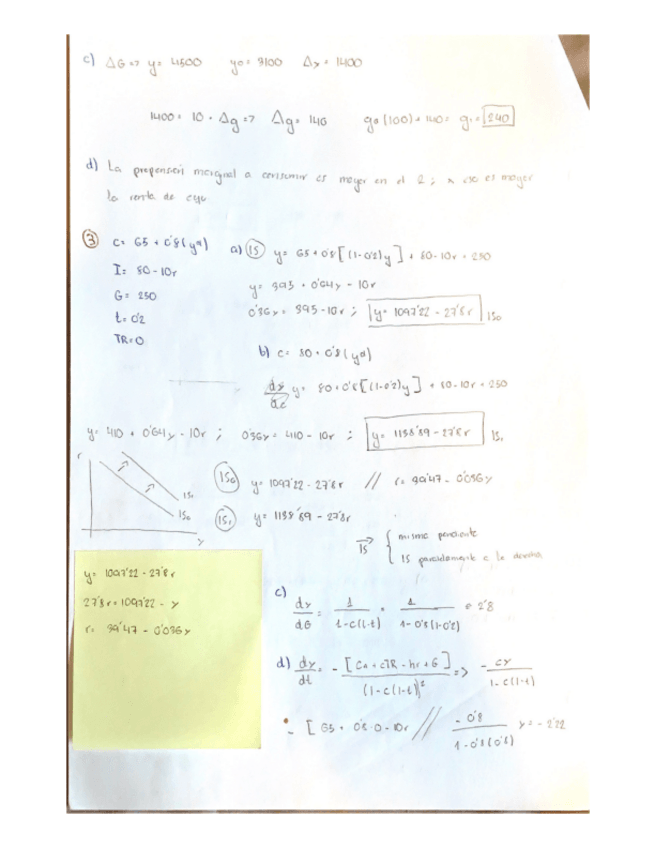 c) ΔG=? y= 4500 y0= 3100 Δy= 1400
1400= 10 · Δg => Δg= 140 g0(100)+140= g1= 240
d) La propensión marginal a consumir es mayor en el 2;
la renta de
③ c= 65 + 0'8(yd)
I= 80-10r
G= 250
t= 0'2
TR=0
a) IS y= 65+0'8[(1-0'2)y] + 80-10r + 250
y= 395 + 0'64y - 10r
0'36y= 395-10r ; y= 1097'22 - 27'8r IS0
b) c= 80+0'8(yd)
dy/dc y= 80+0'8[(1-0'2)y] + 80-10r + 250
y= 410 + 0'64y - 10r ; 0'36y= 410 - 10r ; y= 1138'89 - 27'8r IS1
r
IS1
IS0
y
IS0 y= 1097'22 - 27'8r // r= 39'47 - 0'036y
IS1 y= 1138'89 - 27'8r
IS { misma pendiente
IS paralelamente a la derecha
y= 1097'22 - 27'8r
27'8r= 1097'22 - y
r= 39'47 - 0'036y
c) dy/dG = 1/1-c(1-t) = 1/1-0'8(1-0'2) = 2'8
d) dy/dt = -[Ca + cTR - hr + G]/(1-c(1-t))² => -cy/1-c(1-t)
- [65 + 0'8·0 - 10r // -0'8/1-0'8(0'8) y= -2'22